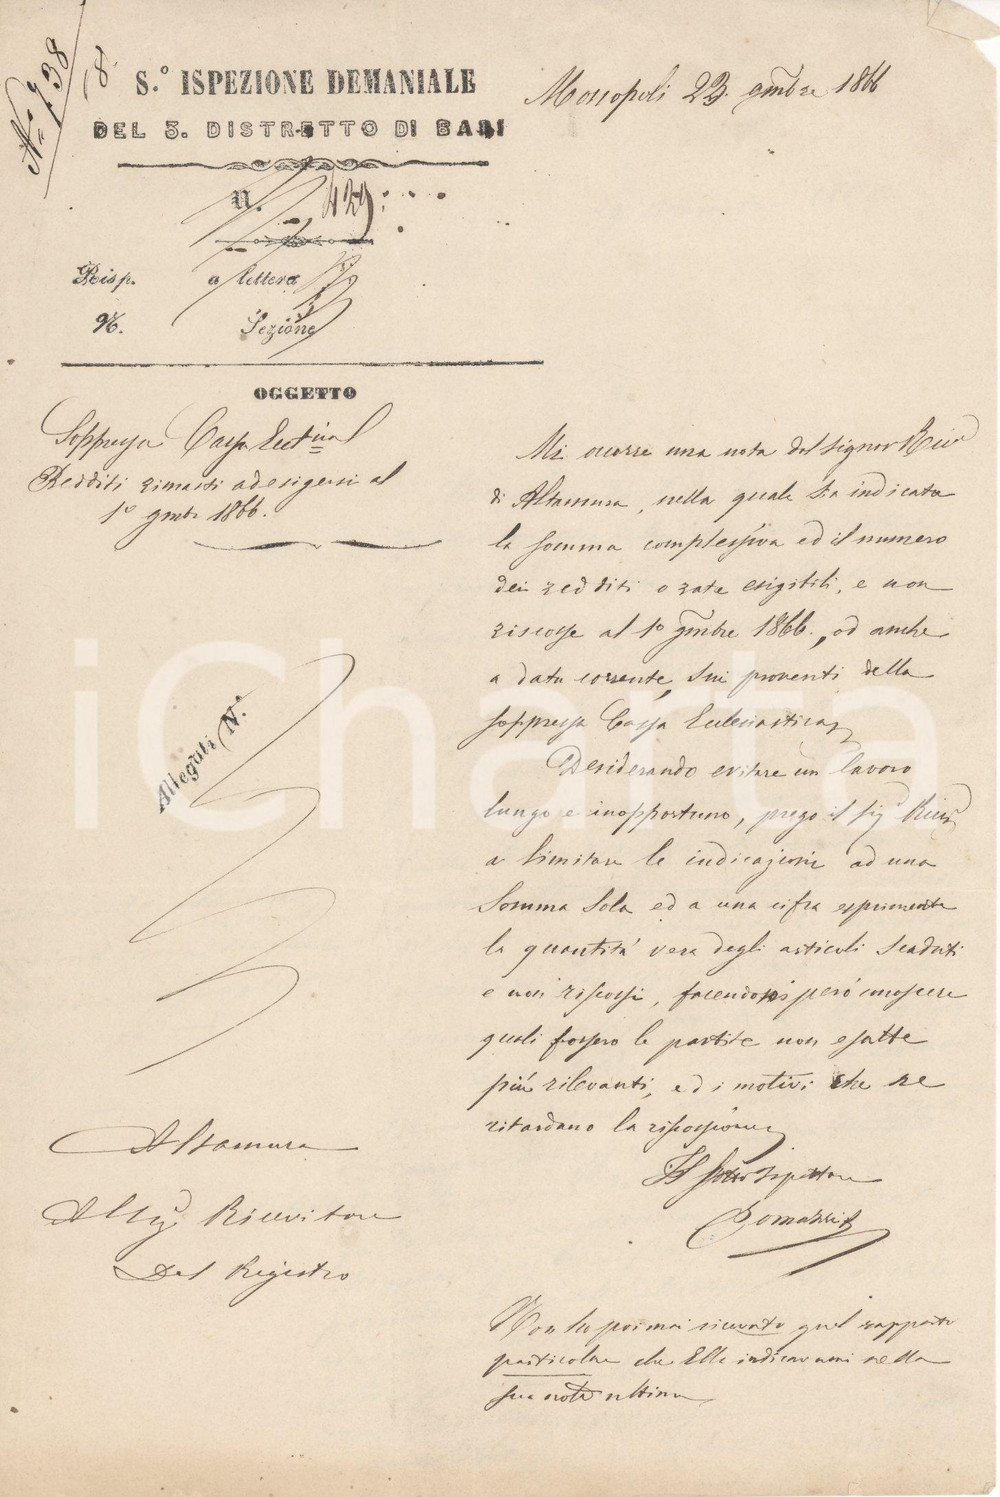 N.° 738
S.° ISPEZIONE DEMANIALE
DEL 3. DISTRETTO DI BARI
Monopoli 23. 9mbre 1866
N. 429
Risp. a lettera
N. Sezione
OGGETTO
Soppressa Cassa Eccl.ca
Redditi rimasti ad esigersi al
1° 9mbre 1866.
Mi occorre una nota dal Signor Ricre
di Altamura, nella quale sia indicata
la somma complessiva ed il numero
dei redditi o rate esigibili, e non
riscosse al 1° 9mbre 1866., od anche
a data corrente, sui proventi della
soppressa Cassa Ecclesiastica.
Desiderando evitare un lavoro
lungo e inopportuno, prego il Sigr Ricre
a limitare le indicazioni ad una
somma sola ed a una cifra esprimente
la quantità vera degli articoli scaduti
e non riscossi, facendomi però conoscere
quali fossero le partite non esatte
più rilevanti, ed i motivi che ne
ritardano la riscossione.
Il Sotto Ispettore
Allegati N.°
Altamura
Al Sigr Ricevitore
Del Registro
Non ho poi mai ricevuto quel rapporto
particolare che Ella indicavami nella
sua nota ultima
iCharta